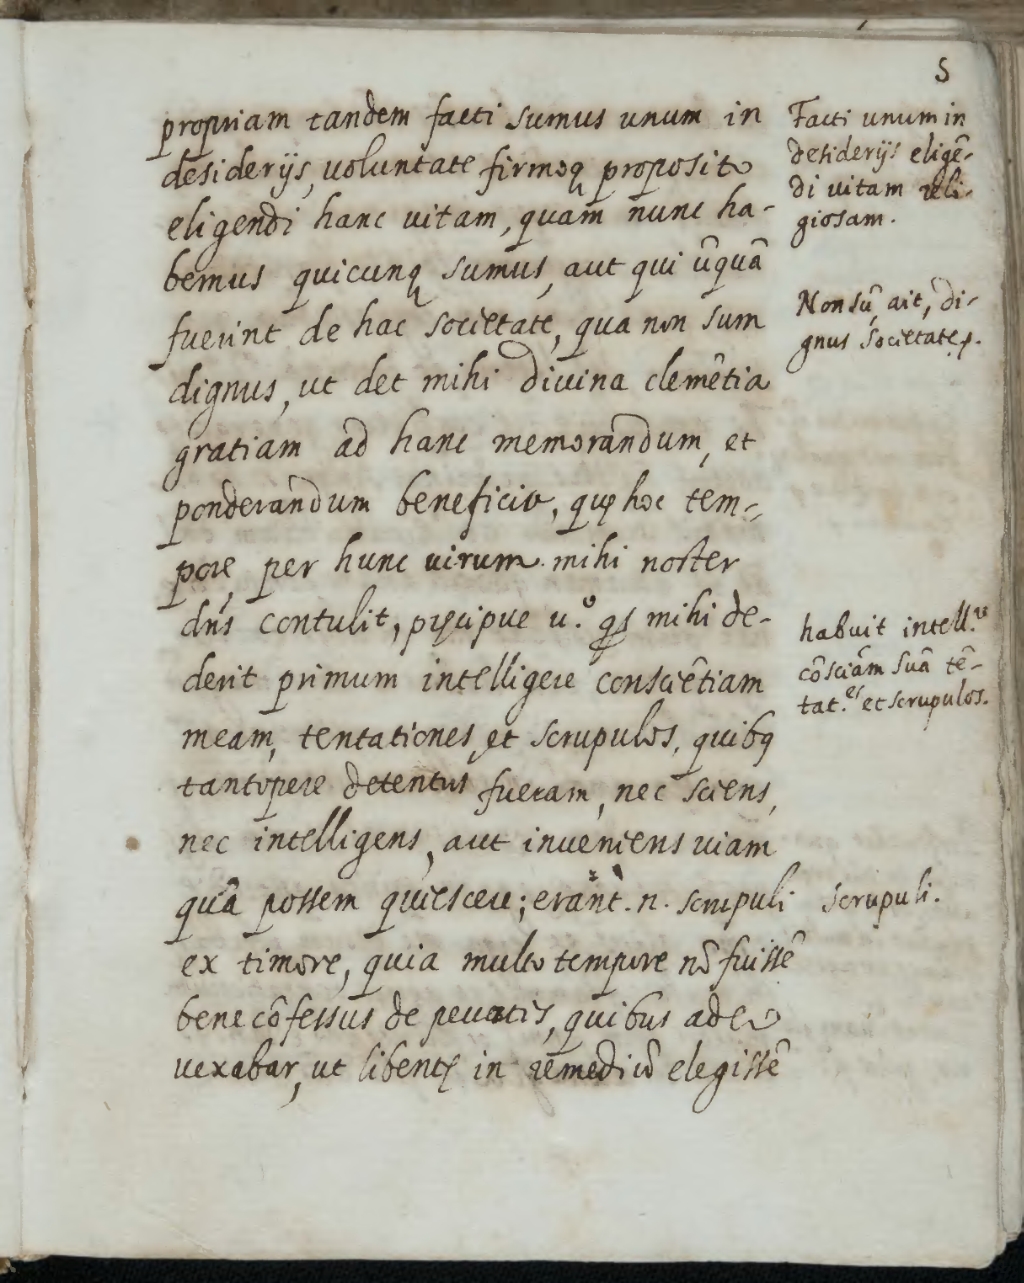 5
propriam tandem facti sumus unum in
desiderijs, voluntate firmoq proposito
eligendi hanc vitam, quam nunc ha-
bemus quicunq sumus, aut qui ũquã
fuerint de hac societate, qua non sum
dignus, ut det mihi divina clemẽtia
gratiam ad hanc memorandum, et
ponderandum beneficiũ, quę hoc tem-
pore per hunc virum mihi noster
dñs contulit, pręcipue v.º qs mihi de-
derit primum intelligere consciẽtiam
meam, tentationes, et scrupulos, quibq
tantopere detentus fueram, nec sciens,
nec intelligens, aut inveniens viam
quã possem quiescere; erant .n. scrupuli
ex timore, quia multo tempore nõ fuissẽ
bene cõfessus de peccatis, quibus adeo
vexabar, ut libentę in remediũ elegissẽ
Facti unum in
desiderijs eligẽ-
di vitam reli-
giosam.
Non sũ, ait, di-
gnus societate p.
habuit intell.ᵘ
cõsciam suã tẽ-
tat.ᵉˢ et scrupulos.
scrupuli.